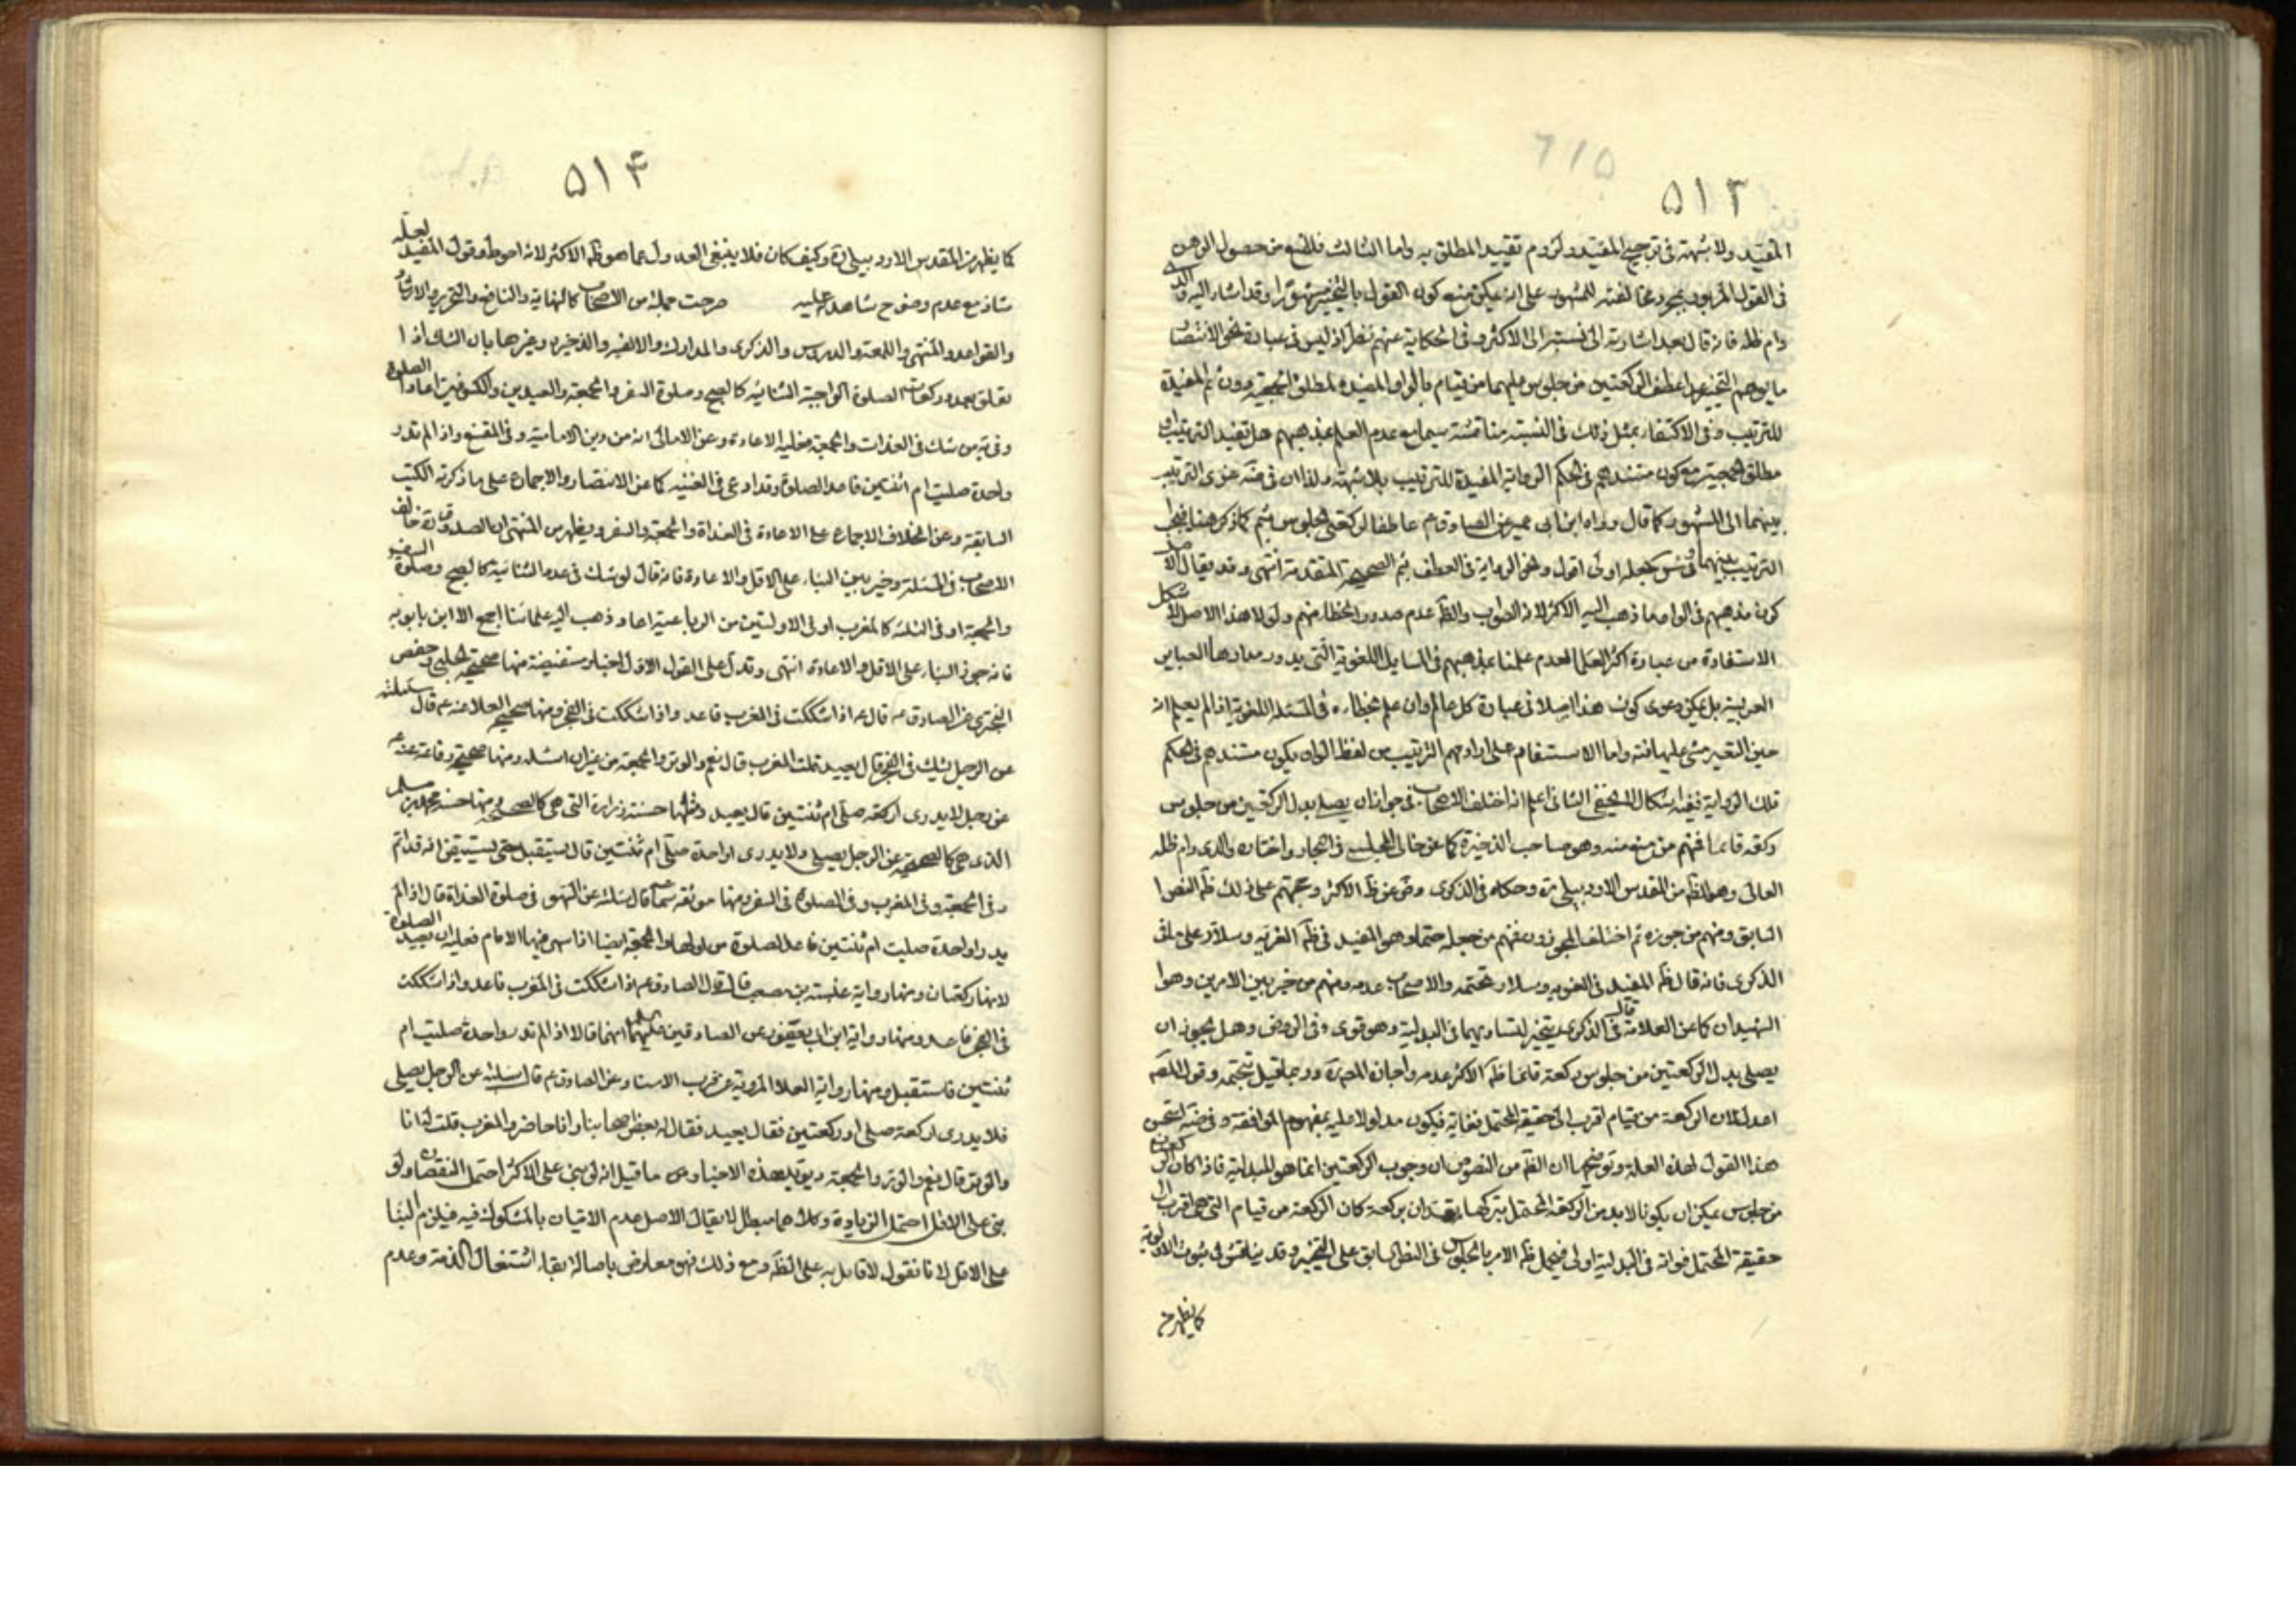 ٥١٣
المقيد ولا شبهة فى ترجيح المقيد ولزوم تقييد المطلق به واما الثالث فلمنع من حصول الوهن
فى القول المزبور بمجرد مخالفته للمشهور على انه يمكن منع كون القول بالتخيير مشهورا وقد اشار اليه والدى
دام ظله فانه قال بعد اشارته الى نسبته الى الاكثر وفى الحكاية عنهم نظر اذ ليس فى عبارة نحو الانتصار
ما يوهم التخيير عدا عطف الركعتين من جلوس عليهما من قيام بالواو المفيدة لمطلق الجمعية دون ثم المفيدة
للترتيب وفى الاكتفاء بمثل ذلك فى النسبة مناقشة سيما مع عدم العلم بمذهبهم هل تفيد الترتيب او
مطلق الجمعية مع كون مستندهم فى الحكم الرواية المفيدة للترتيب بلا شبهة ولذا ان فى ضه عزى الترتيب
بينهما الى المشهور كما قال رواه ابن ابى عمير عن الصادق ع عاطفا لركعتى الجلوس بثم كما ذكر هنا فيجب
الترتيب بينهما وفى س جعله اولى اقول ونحو الرواية فى العطف بثم الصحيحة المتقدمة انتهى وقد يقال الاصل
كون مذهبهم فى الواو ما ذهب اليه الاكثر لانه الصواب والظ عدم صدور الخطاء منهم ولولا هذا الاصل لاشكل
الاستفادة من عبارة اكثر العلماء لعدم علمنا بمذهبهم فى المسايل اللغوية التى يدور مدارها العباير
العربية بل يمكن دعوى كون هذا اصلا فى عبارة كل عالم وان علم بخطاءه فى المسئلة اللغوية اذا لم يعلم انه
حين التعبير مشى عليها فته واما الاستفهام على ارادتهم الترتيب من لفظ الواو بكون مستندهم فى الحكم
تلك الرواية ففيه اشكال لا يخفى الثانى اعلم انه اختلف الاصحاب فى جواز ان يصلى بدل الركعتين من جلوس
ركعة قائما فمنهم من منع منه وهو صاحب الذخيرة كما عن خالى المجلسى فى البحار واختاره والدى دام ظله
العالى وهو الظ من المقدس الاردبيلى ره وحكاه فى الذكرى وض عن ظ الاكثر وحجتهم على ذلك ظ النص
السابق ومنهم من جوزه ثم اختلف المجوزون فمنهم من جعله حتما وهو المفيد فى ظ الغرية وسلار على ما فى
الذكرى فانه قال ظ المفيد فى الغرية وسلار تحتمه والاصحاب عدمه ومنهم من خير بين الامرين وهوا
الشهيدان كما عن العلامة قال فى الذكرى يتخير لتساويهما فى البدلية وهو قوى وفى الروض وهل يجوز ان
يصلى بدل الركعتين من جلوس ركعة قائما ظ الاكثر عدمه واجازه المص ره وربما قيل بتحتمه وقول المص
اعدل لان الركعة من قيام اقرب الى حقيقة المحتمل فواته فيكون مدلولا عليه بمفهوم الموافقة وفى ضه استحسن
هذا القول لهذه العلة وتوضيحها ان الظ من النصوص ان وجوب الركعتين انما هو للبدلية فاذا كان الركعتان
من جلوس يمكن ان يكونا لا بد من الركعة المحتمل تركها كان الركعة من قيام التى هى اقرب الى
حقيقة المحتمل فواته فى البدلية اولى فيحمل ظ الامر بالجلوس فى النص السابق على التخيير وقد يناقش فى ثبوت الاولوية
كما يظهر من
٥١۴
كما يظهر من المقدس الاردبيلى ره وكيف كان فلا ينبغى العدول عما هو ظ الاكثر لانه احوط وقول المفيد لعله
شاذ مع عدم وضوح شاهد عليه صرحت جملة من الاصحاب كالنهاية والنافع والتحرير والارشاد
والقواعد والمنتهى واللمعة والدروس والذكرى والمدارك والالفية والذخيرة وغيرها بان الشك اذا
تعلق بعدد ركعات الصلوة الواجبة الثنائية كالصبح وصلوة السفر والجمعة والعيدين والكسوفين اعاد الصلوة
وفى يه من شك فى الغداة والجمعة فعليه الاعادة وعن الامالى انه من دين الامامية وفى المقنع واذا لم تدر
واحدة صليت ام اثنتين فاعد الصلوة وقد ادعى فى الغنية كما عن الانتصار والاجماع على ما ذكرته الكتب
السابقة وعن الخلاف الاجماع على الاعادة فى الغداة والجمعة والسفر ويظهر من المنتهى ان الصدوق ره خالف
الاصحاب فى المسئلة وخير بين البناء على الاقل والاعادة فانه قال لو شك فى عدد الثنائية كالصبح وصلوة السفر
والجمعة او فى الثلثة كالمغرب او فى الاوليتين من الرباعية اعاد وذهب اليه علمائنا اجمع الا ابن بابويه
فانه جوز البناء على الاقل والاعادة انتهى وتدل على القول الاول اخبار مستفيضة منها صحيحة الحلبى وحفص
البخترى عن الصادق ع قال ع اذا شككت فى المغرب فاعد واذا شككت فى الفجر ومنها صحيحة العلا عنه ع قال سئلته
عن الرجل يشك فى الفجر قال يعيد قلت المغرب قال نعم والوتر والجمعة من غير ان اسئله ومنها صحيحة رفاعة عنه ع
عن رجل لا يدرى اركعة صلى ام ثنتين قال يعيد ومنها حسنة زرارة التى هى كالصحيحة ومنها حسنة محمد بن مسلم
الذى هى كالصحيحة عن الرجل يصلى ولا يدرى اواحدة صلى ام ثنتين قال يستقبل حتى يستيقن انه قد اتم
وفى الجمعة وفى المغرب وفى الصلوة فى السفر ومنها موثقة سماعة قال سئلته عن السهو فى صلوة الغداة قال اذا لم
يدر اواحدة صليت ام ثنتين فاعد الصلوة من اولها والجمعة ايضا اذا سهى فيها الامام فعليه ان يعيد الصلوة
لانها ركعتان ومنها رواية عنبسة بن مصعب قال قال الصادق ع اذا شككت فى المغرب فاعد واذا شككت
فى الفجر فاعد ومنها رواية ابن ابى يعفور عن الصادقين عليهما السلام انهما قالا اذا لم تدر واحدة صليت ام
ثنتين فاستقبل ومنها رواية العلا المروية عن قرب الاسناد عن الصادق ع قال سئلته عن الرجل يصلى
فلا يدرى اركعة صلى او ركعتين فقال يعيد فقال له بعض اصحابنا وانا حاضر والمغرب قلت له انا
والوتر قال نعم والوتر والجمعة ويؤيد هذه الاخبار ما قيل انه لو بنى على الاكثر احتمل النقصان ولو
بنى على الاقل احتمل الزيادة وكلاهما مبطل لا يقال الاصل عدم الاتيان بالمشكوك فيه فيلزم البناء
على الاقل لانا نقول لا قائل به على الظ ومع ذلك فهو معارض باصالة بقاء اشتغال الذمة وعدم